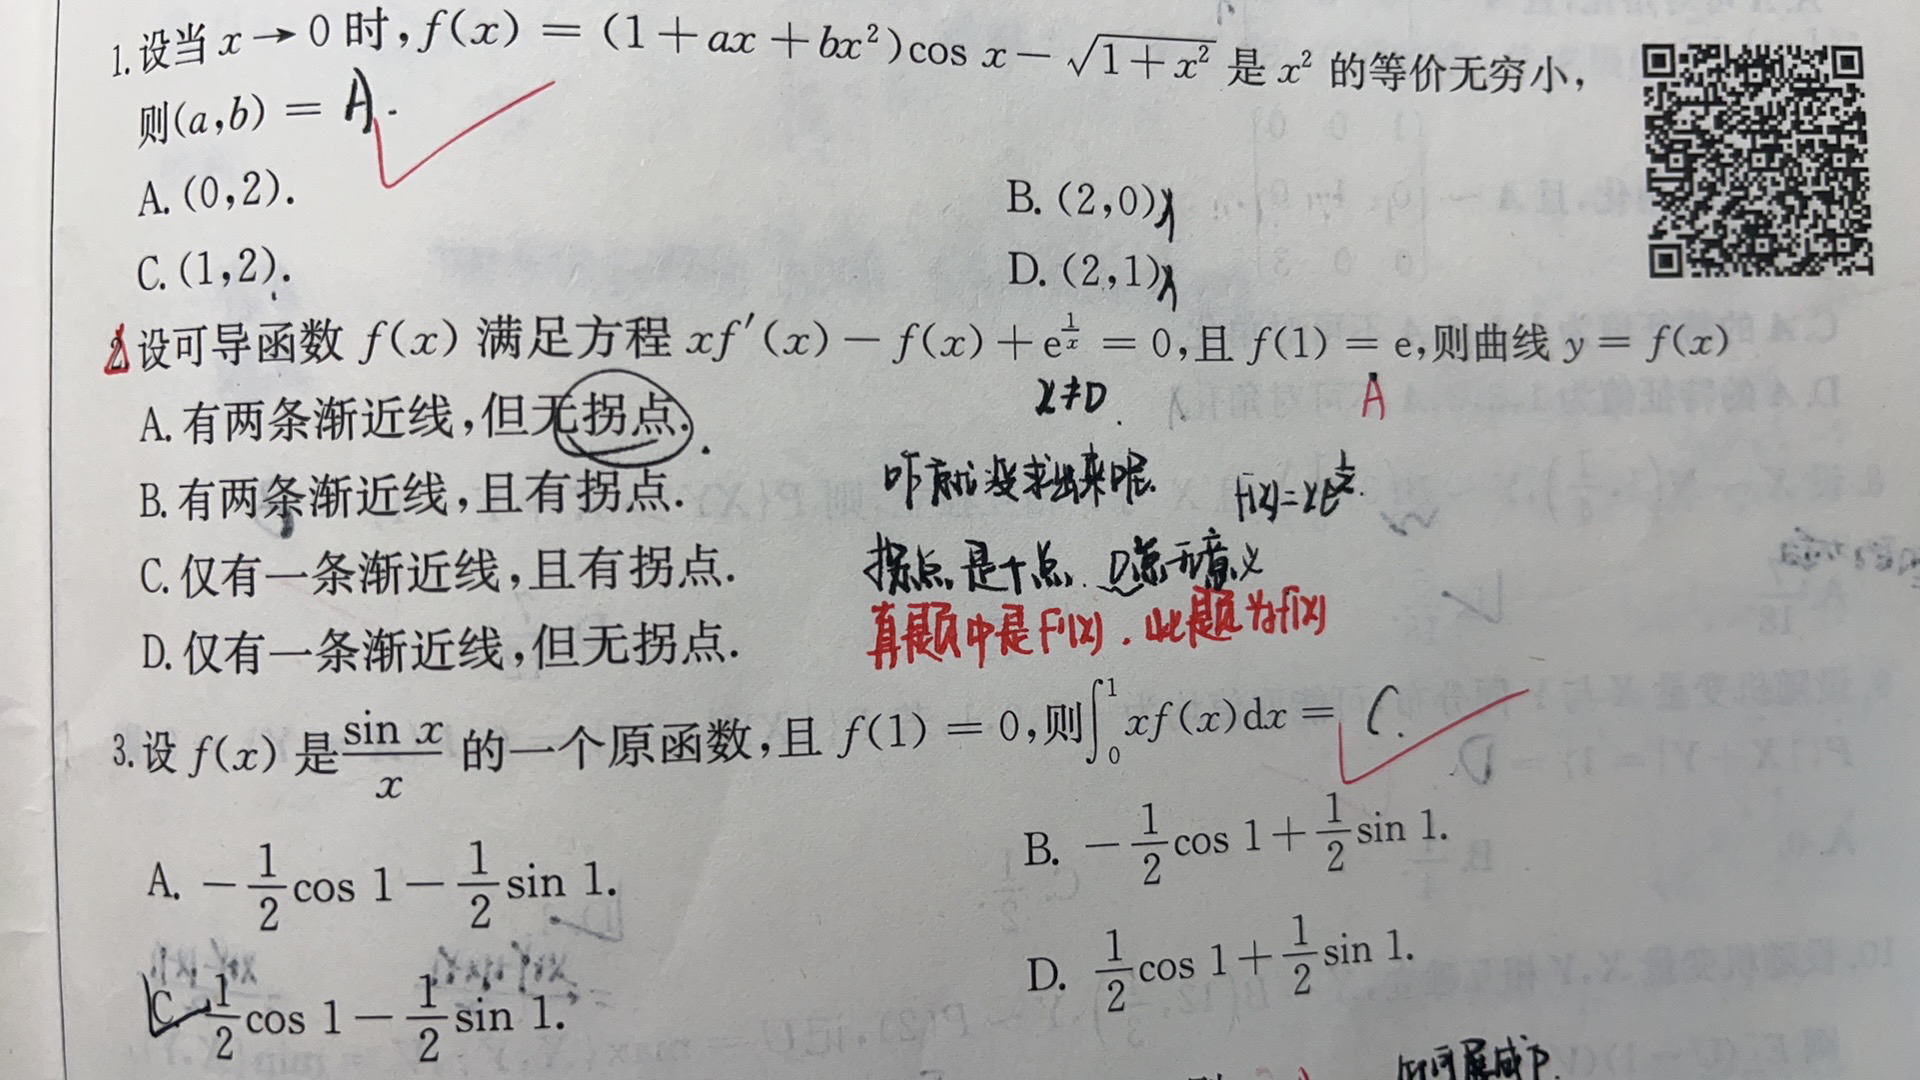 1.设当 x → 0 时,f(x) = (1+ax+bx²)cos x − √(1+x²) 是 x² 的等价无穷小,
则(a,b) = A.
A. (0,2).
B. (2,0)
C. (1,2).
D. (2,1)
2.设可导函数 f(x) 满足方程 xf′(x) − f(x) + e^(1/x) = 0,且 f(1) = e,则曲线 y = f(x)
x≠0
A
A. 有两条渐近线,但无拐点.
B. 有两条渐近线,且有拐点.
咋就没求出来呢.
f(x)=xe^(1/x).
C. 仅有一条渐近线,且有拐点.
拐点是个点. 0点无意义
真题中是F(x). 此题为f(x)
D. 仅有一条渐近线,但无拐点.
3.设 f(x) 是 sin x/x 的一个原函数,且 f(1) = 0,则∫₀¹ xf(x)dx = C.
A. −1/2 cos 1 − 1/2 sin 1.
B. −1/2 cos 1 + 1/2 sin 1.
C. 1/2 cos 1 − 1/2 sin 1.
D. 1/2 cos 1 + 1/2 sin 1.